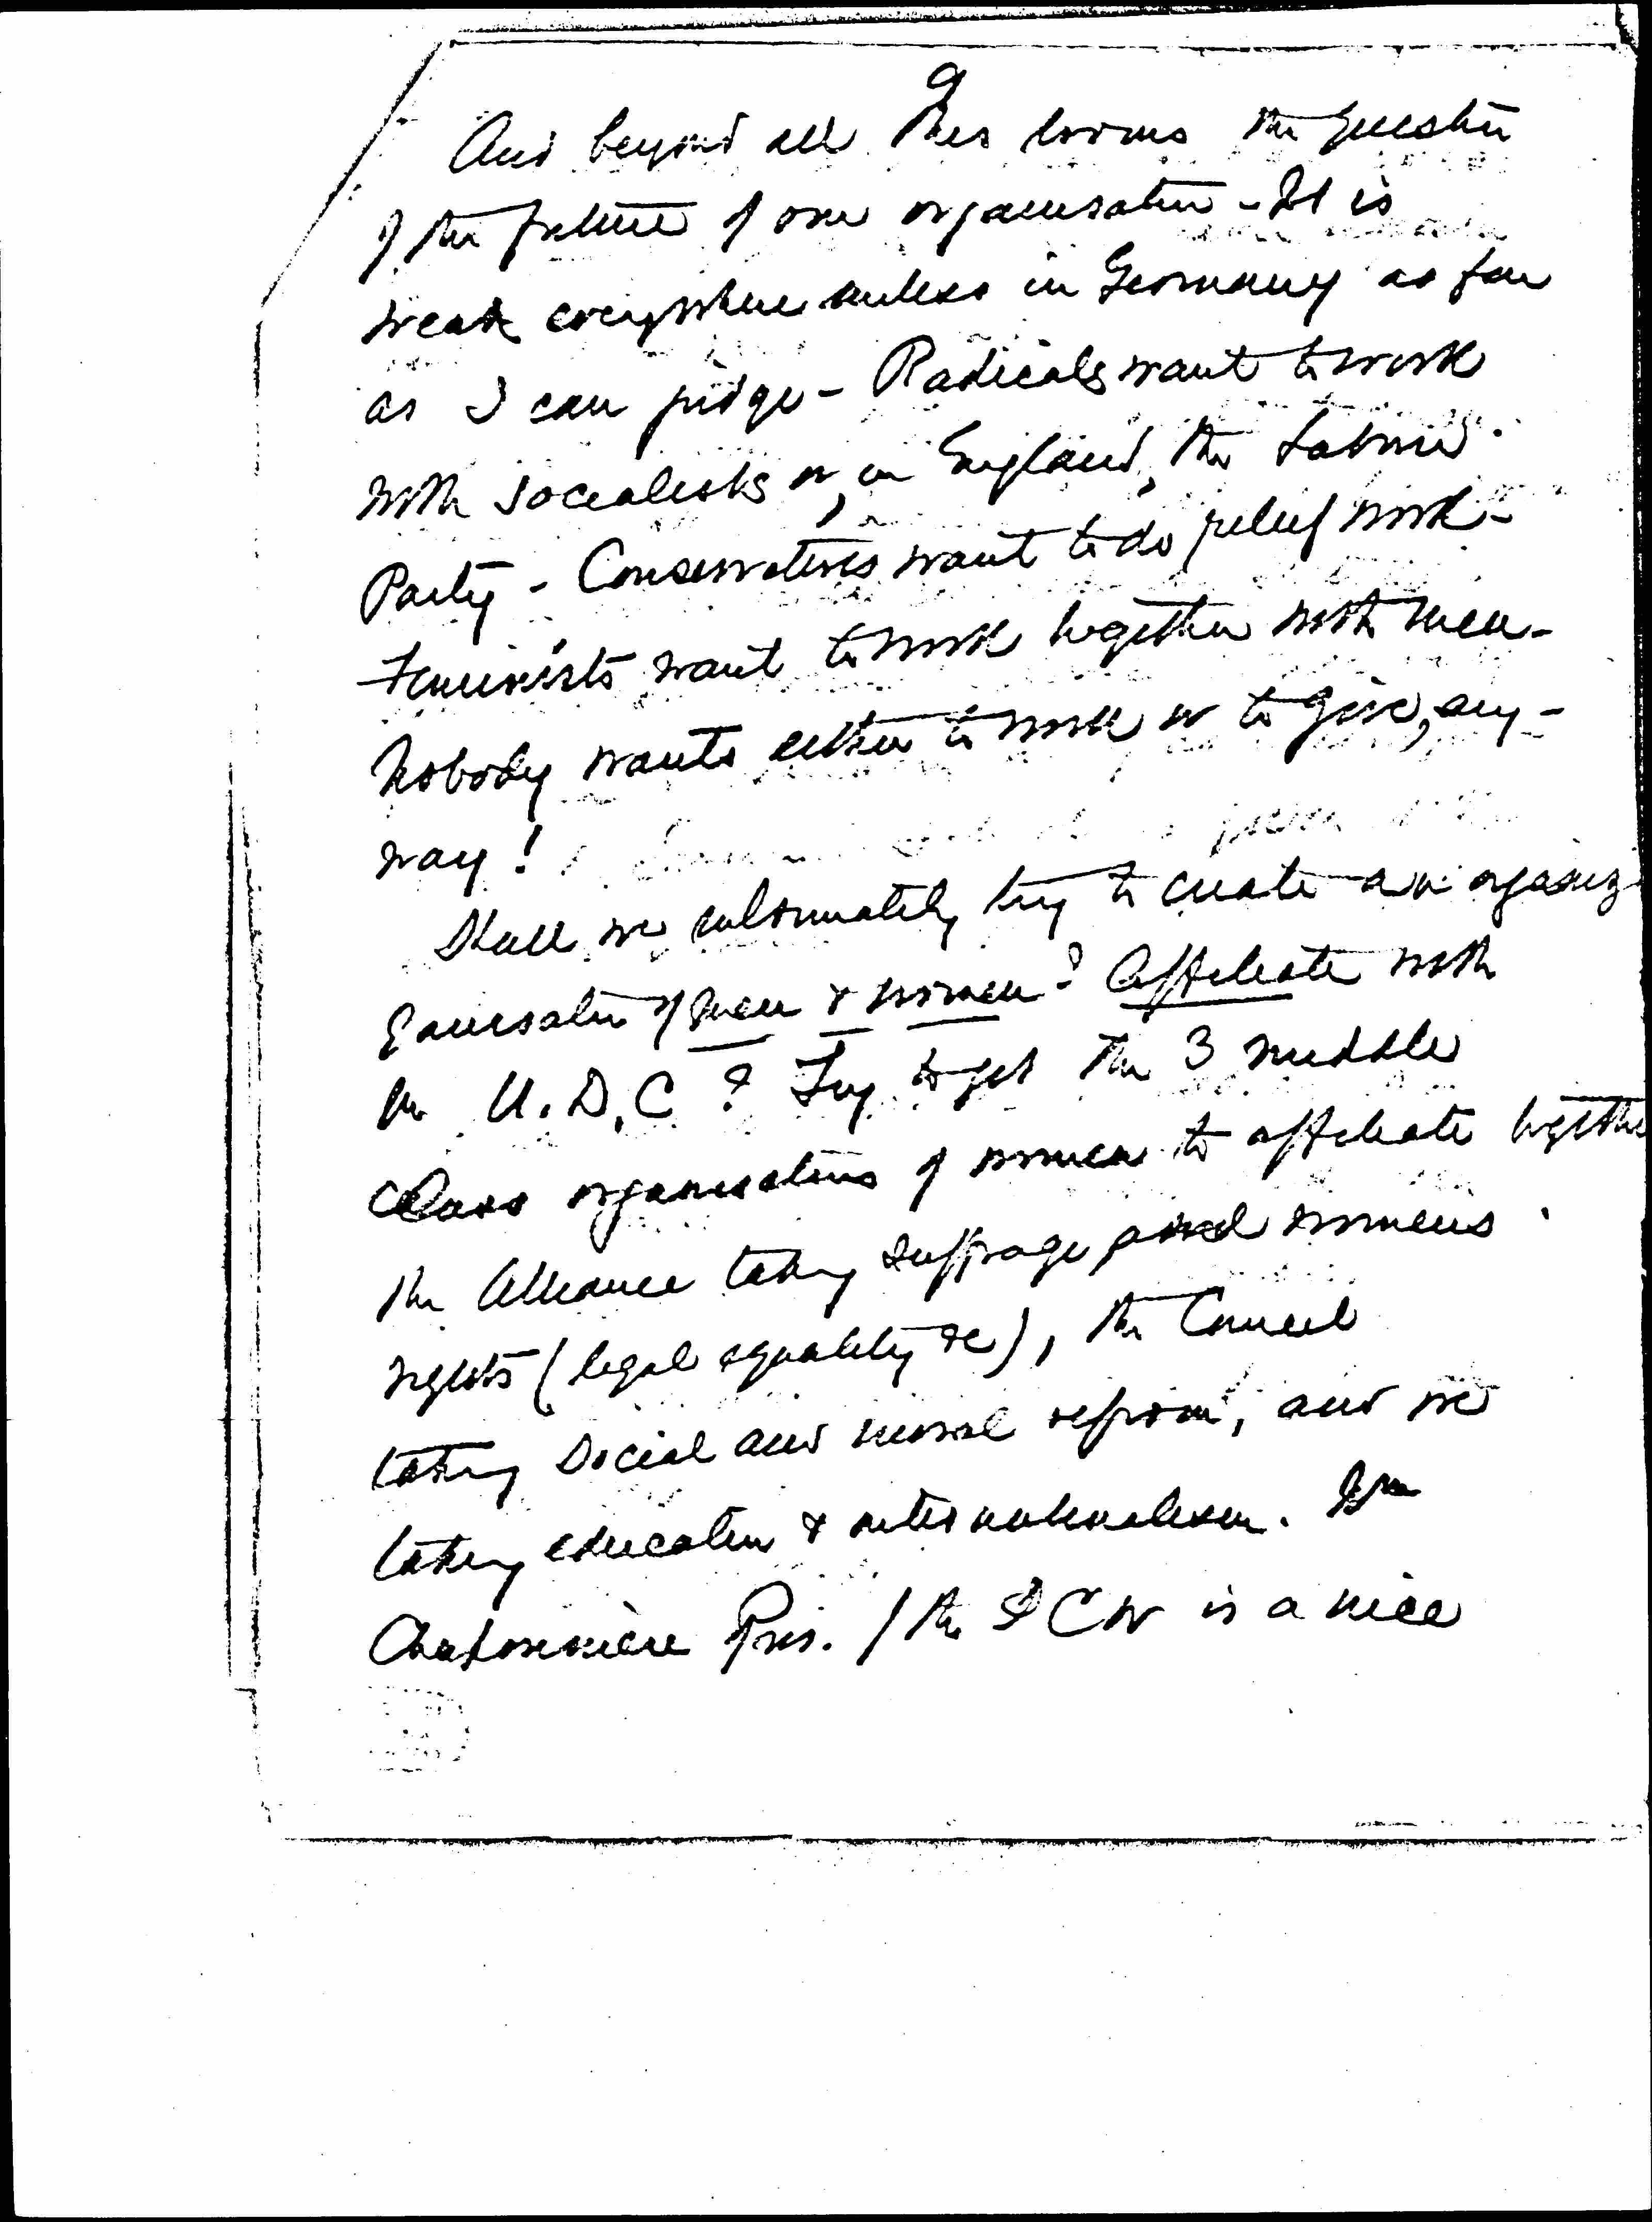 9
And beyond all this looms the question
of the future of our organisation - It is
weak everywhere unless in Germany as far
as I can judge - Radicals want to work
with socialists or, in England, the Labour
Party - Conservatives want to do relief work -
Feminists want to work together with men -
Nobody wants either to work or to give, any-
way!
Shall we ultimately try to create an organiz
ganisation of men & women? Affiliate with
the U.D.C? Try to get the 3 middle
class organisations of women to affiliate together
the Alliance taking suffrage and womens
rights (legal equality &c), the Council
taking social and moral reform, and we
taking education & internationalism.
Pres. of the ICW is a nice